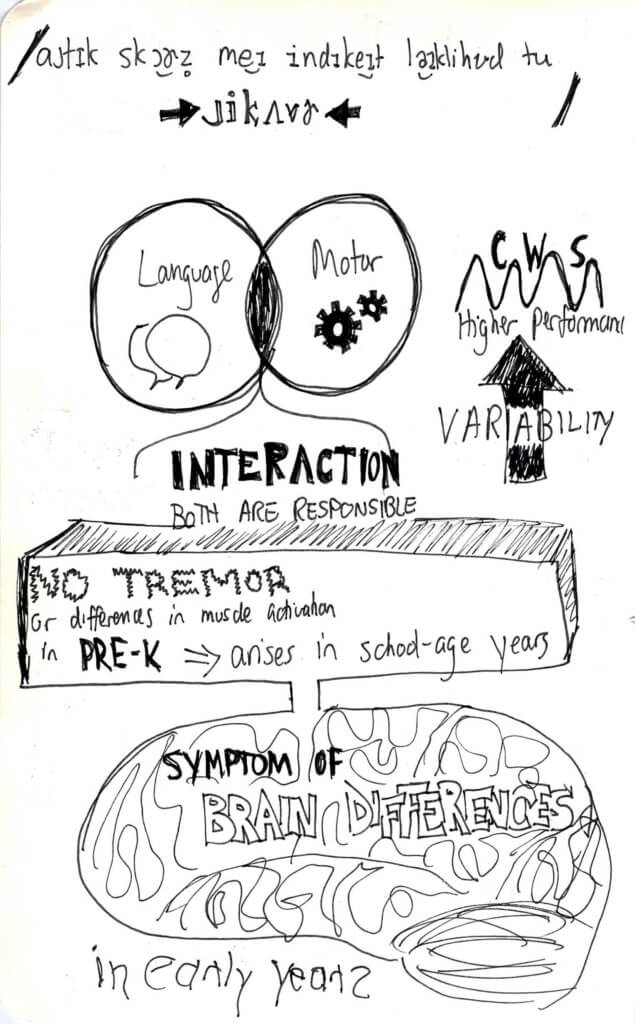 /aɹtɪk skɔɚz̥ meɪ indɪkeɪt laɪklihʊd tu
ɹikʌvɚ /
Language
Motor
CWS
Higher Performance
VARIABILITY
INTERACTION
BOTH ARE RESPONSIBLE
NO TREMOR
or differences in muscle activation
in PRE-K ⇒ arises in school-age years
SYMPTOM OF
BRAIN DIFFERENCES
in early years